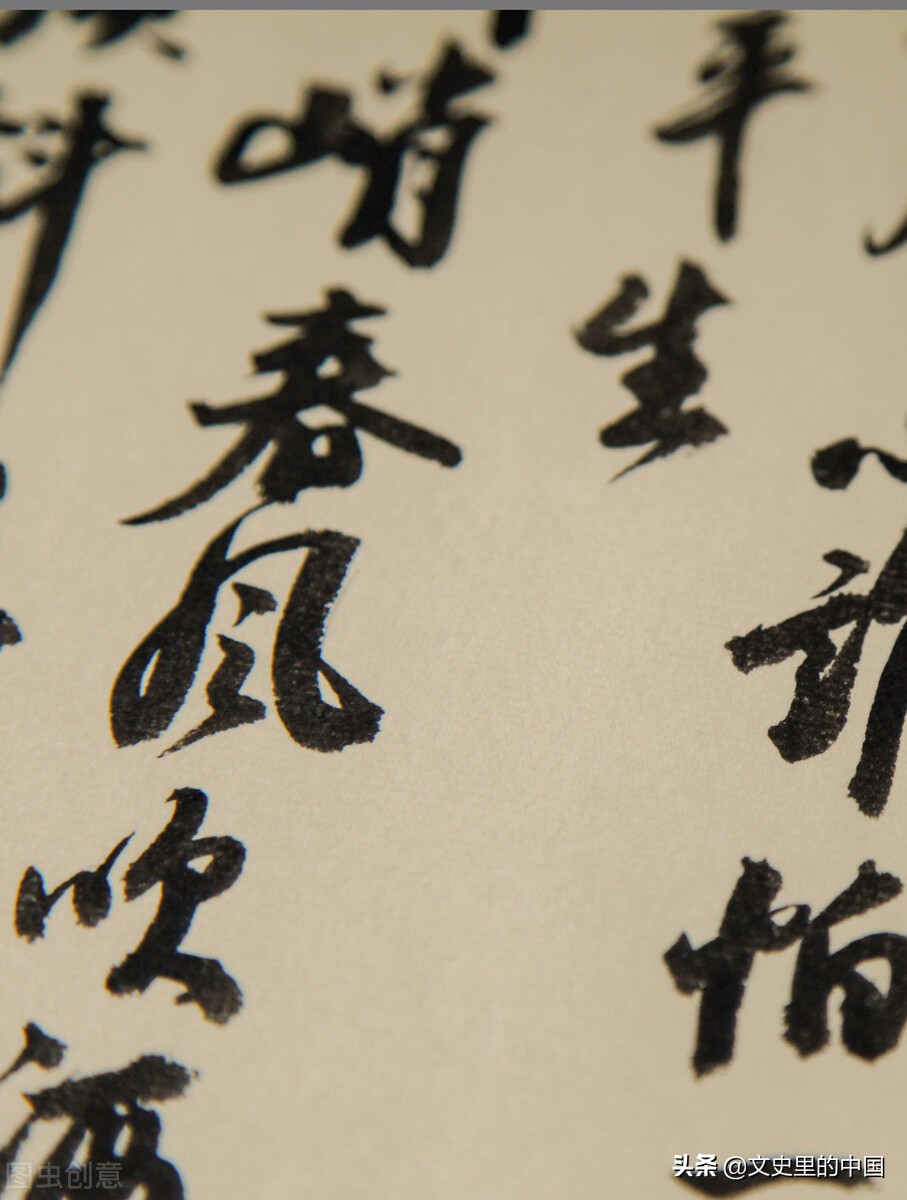 谁怕
平生
峭春风吹酒
斜
图虫创意
头条 @文史里的中国